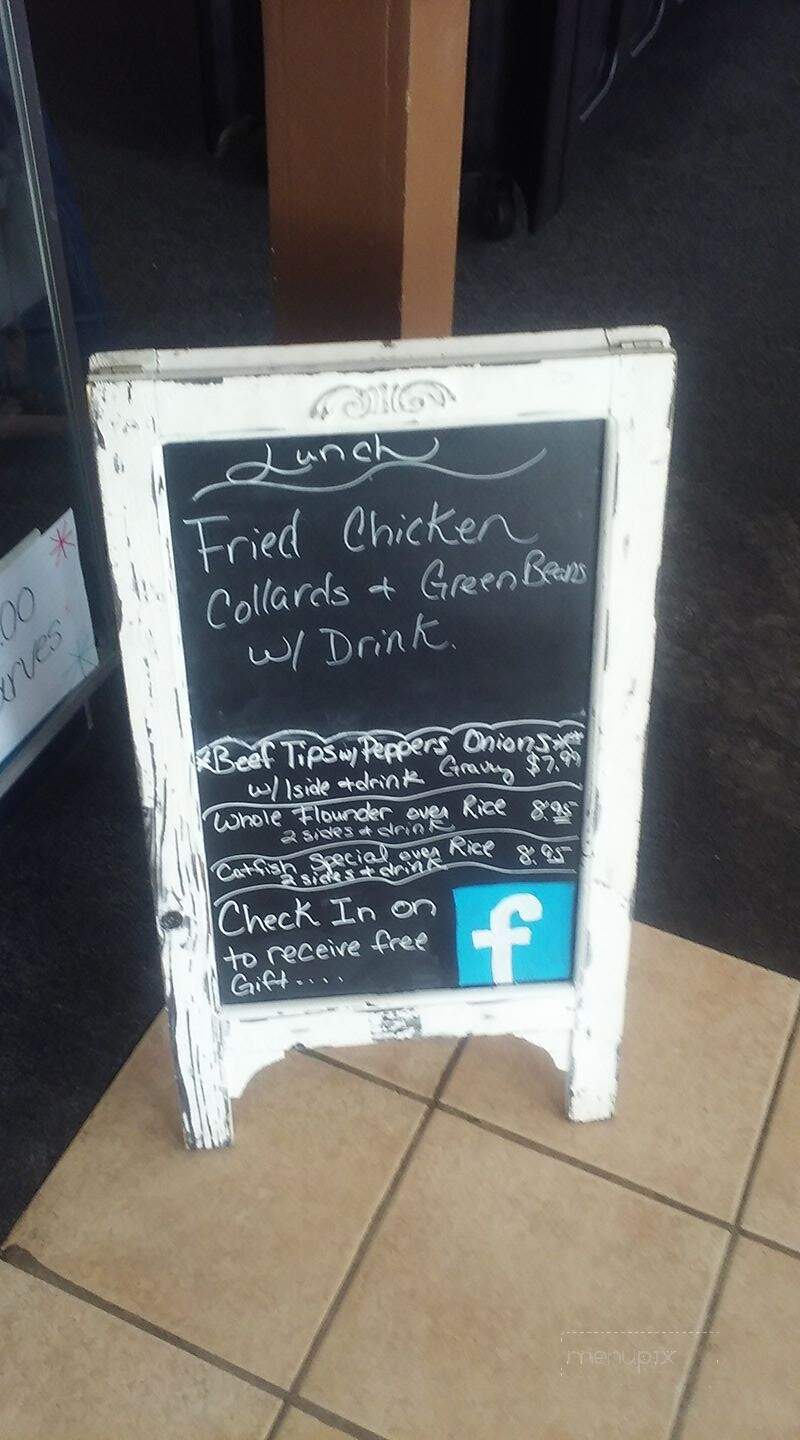 Lunch
Fried Chicken
Collards + Green Beans
w/ Drink.
*Beef Tips w/ Peppers Onions**
w/ 1 side + drink Gravy $7.99
Whole Flounder over Rice 8.95
2 sides + drink
Catfish Special over Rice 8.95
2 sides + drink
Check In on f
to receive free
Gift.....
.00
menupix